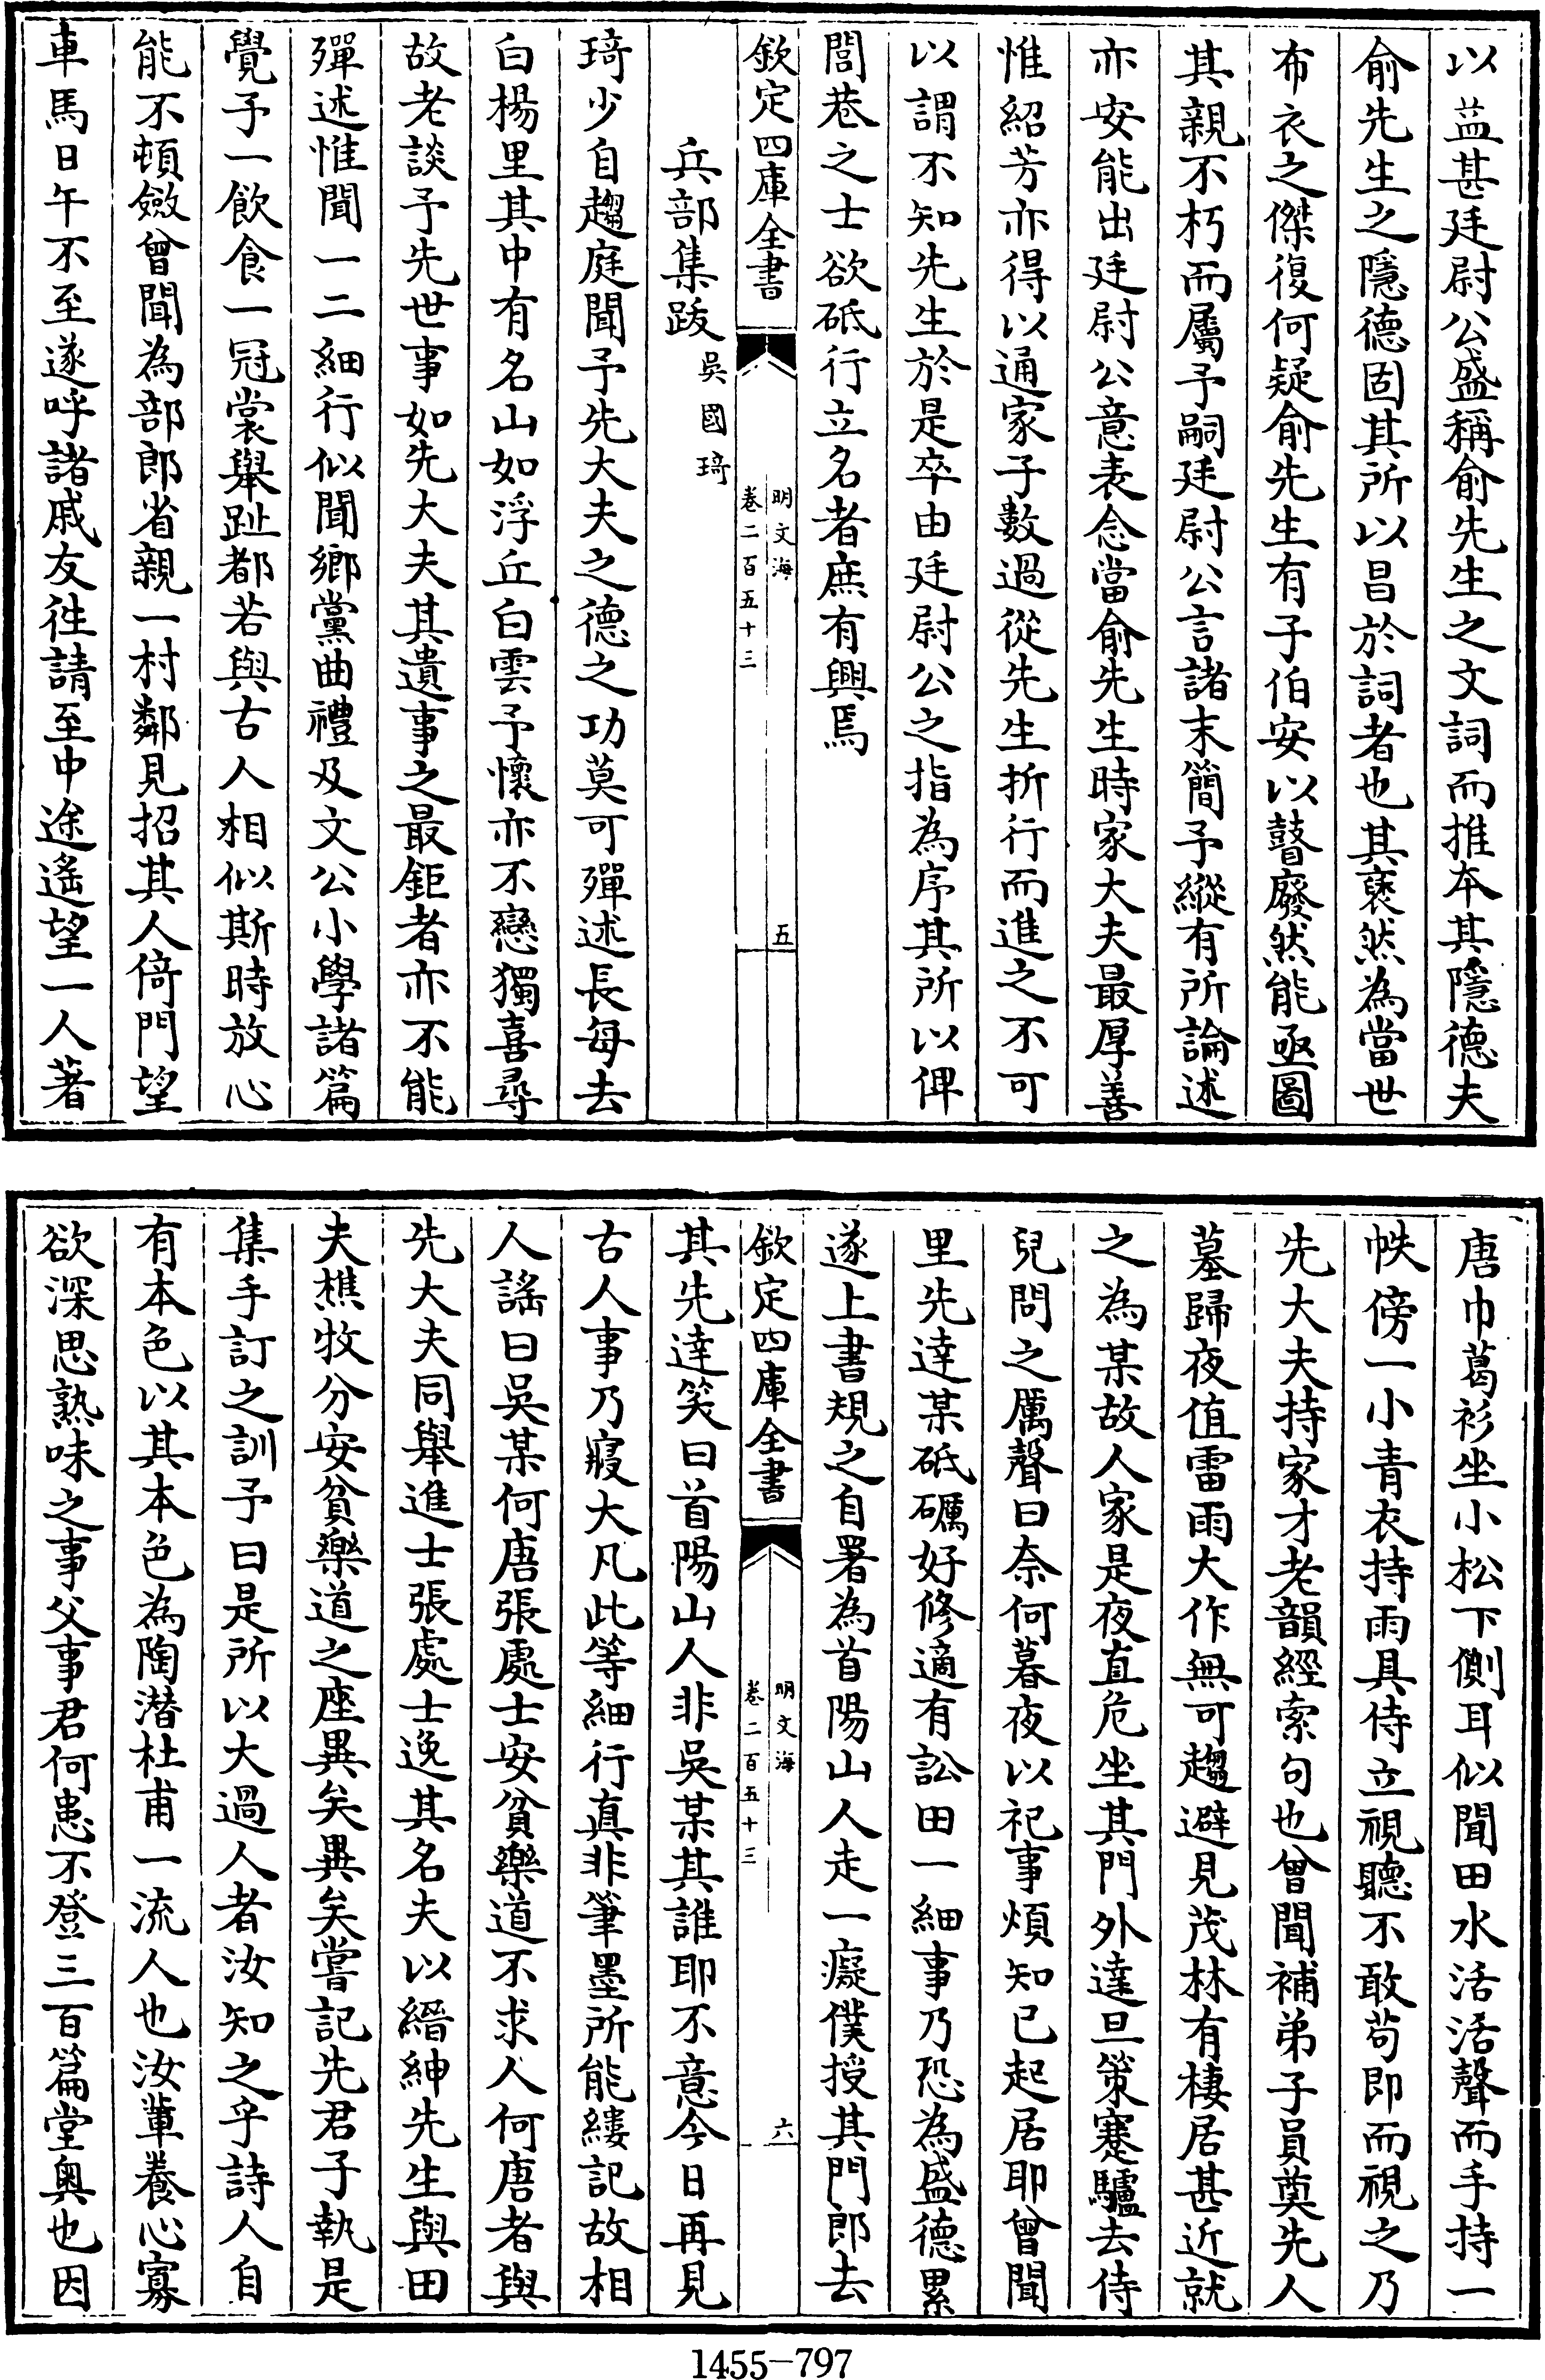 以葢甚廷尉公盛稱俞先生之文詞而推本其隱德夫
俞先生之隱德固其所以昌於詞者也其褒然為當世
布衣之傑復何疑俞先生有子伯安以瞽廢然能亟圖
其親不朽而屬予嗣廷尉公言諸末簡予縱有所論述
亦安能出廷尉公意表念當俞先生時家大夫最厚善
惟紹芳亦得以通家子數過從先生折行而進之不可
以謂不知先生於是卒由廷尉公之指為序其所以俾
閭巷之士欲砥行立名者庶有興焉
欽定四庫全書
明文海
卷二百五十三
五
兵部集跋 吳國琦
琦少自趨庭聞予先大夫之德之功莫可殫述長每去
白楊里其中有名山如浮丘白雲予懷亦不戀獨喜尋
故老談予先世事如先大夫其遺事之最鉅者亦不能
殫述惟聞一二細行似聞鄉黨曲禮及文公小學諸篇
覺予一飲食一冠裳舉趾都若與古人相似斯時放心
能不頓斂曾聞為部郎省親一村鄰見招其人倚門望
車馬日午不至遂呼諸戚友徃請至中途遙望一人著
唐巾葛衫坐小松下側耳似聞田水活活聲而手持一
帙傍一小青衣持雨具侍立視聽不敢苟即而視之乃
先大夫持家才老韻經索句也曾聞補弟子員奠先人
墓歸夜值雷雨大作無可趨避見茂林有棲居甚近就
之為某故人家是夜直危坐其門外達旦策蹇驢去侍
兒問之厲聲曰奈何暮夜以祀事煩知已起居耶曾聞
里先達某砥礪好修適有訟田一細事乃恐為盛德累
遂上書規之自署為首陽山人走一癡僕授其門郎去
欽定四庫全書
明文海
卷二百五十三
六
其先達笑曰首陽山人非吳某其誰耶不意今日再見
古人事乃寢大凡此等細行真非筆墨所能縷記故相
人謠曰吳某何唐張處士安貧樂道不求人何唐者與
先大夫同舉進士張處士逸其名夫以縉紳先生與田
夫樵牧分安貧樂道之座異矣異矣嘗記先君子執是
集手訂之訓予曰是所以大過人者汝知之乎詩人自
有本色以其本色為陶潛杜甫一流人也汝輩養心寡
欲深思熟味之事父事君何患不登三百篇堂奧也因
1455-797